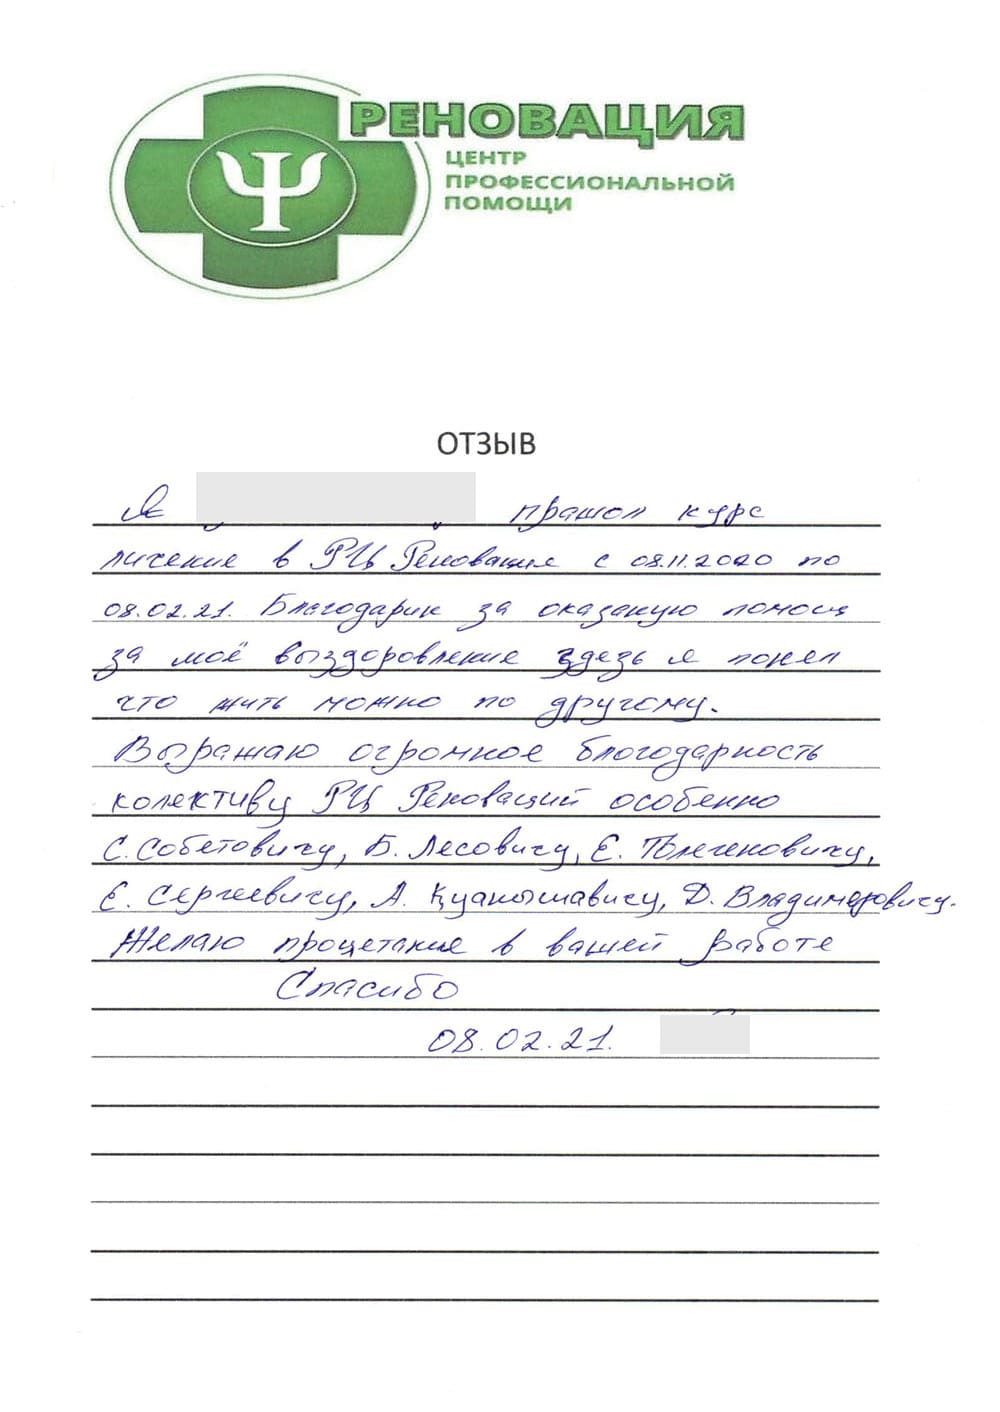 РЕНОВАЦИЯ
ЦЕНТР
ПРОФЕССИОНАЛЬНОЙ
ПОМОЩИ
ОТЗЫВ
Я прашол курс
личение в РЦ Реновация с 08.11.2020 по
08.02.21. Благодарин за оказаную помощ
за моё выздоровление здезь я понял
что жить можно по другому.
Выражаю огромное благодарность
колективу РЦ Реноваций особенно
С. Собетовичу, Б. Лесовичу, Е. Тылегеновичу,
Е. Сергеевичу, А. Қуанышавичу, Д. Владимеровичу.
Желаю процетание в вашей работе
Спасибо
08.02.21.